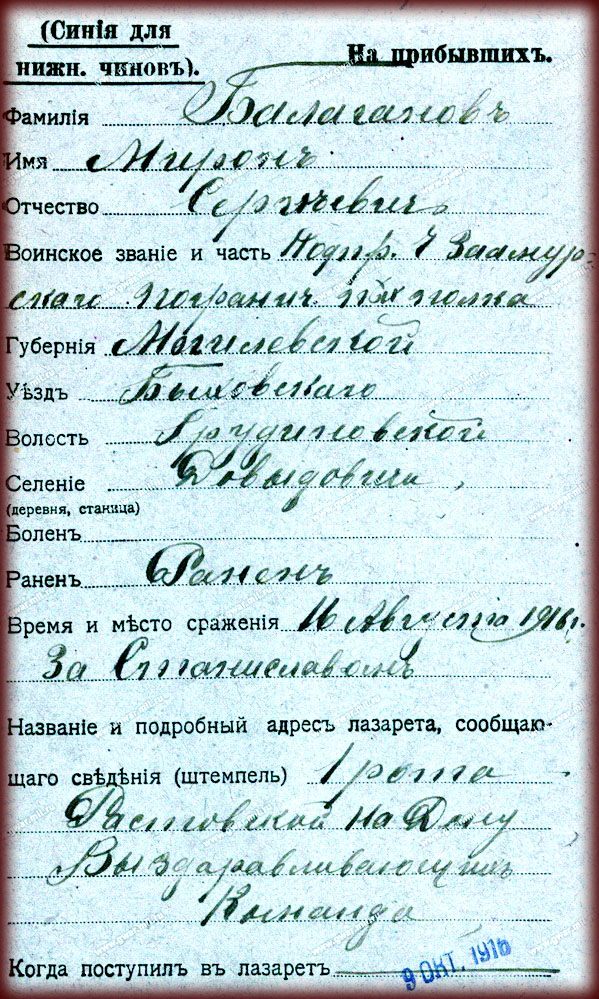 (Синія для
нижн. чиновъ).
На прибывшихъ.
Фамилія Балагановъ
Имя Миронъ
Отчество Сергѣевичъ
Воинское званіе и часть Подпр. 4 Заамур-
скаго погранич. пѣх полка
Губернія Могилевской
Уѣздъ Быховскаго
Волость Грудиновской
Селеніе Довыдовичи
(деревня, станица)
Боленъ
Раненъ Раненъ
Время и мѣсто сраженія 16 Августа 1916 г.
За Станиславомъ
Названіе и подробный адресъ лазарета, сообщаю-
щаго свѣдѣнія (штемпель) 1 рота
Растовской на Дону
Выздаравливающихъ
Команда
Когда поступилъ въ лазаретъ 9 ОКТ. 1916